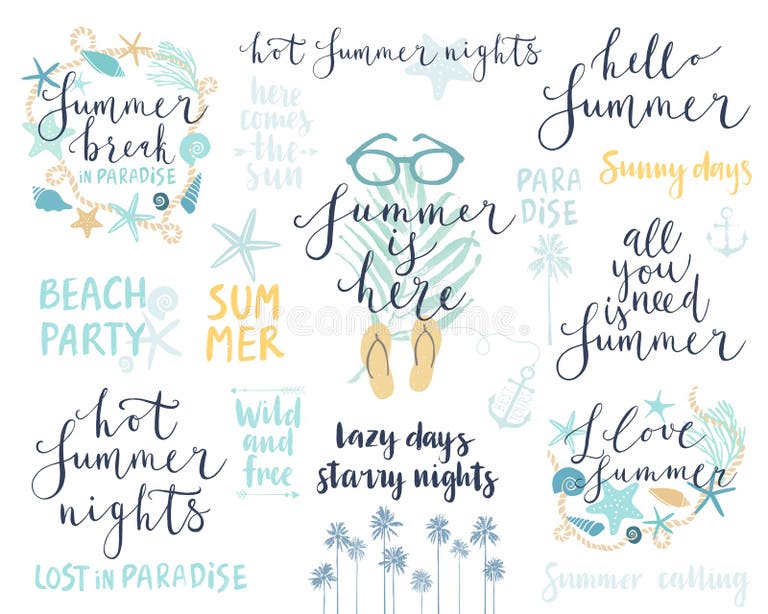 Summer
break
IN PARADISE
hot Summer nights
here
comes
the
sun
hello
Summer
Sunny days
PARA
DISE
Summer
is
here
all
you
need
is
Summer
BEACH
PARTY
SUM
MER
dreamstime
hot
Summer
nights
Wild
and
free
lazy days
starry nights
BEST
I love
Summer
LOST IN PARADISE
Summer calling